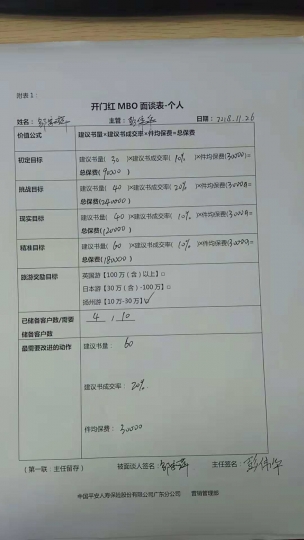 附表1：
开门红 MBO 面谈表-个人
姓名： 主管： 日期：2018.11.26
价值公式 建议书量×建议书成交率×件均保费=总保费
初定目标 建议书量( 30 )×建议书成交率( 10% )×件均保费(30000)=
总保费( 90000 )
挑战目标 建议书量( 40 )×建议书成交率( 20% )×件均保费(30000)=
总保费(240000)
现实目标 建议书量( 40 )×建议书成交率( 10% )×件均保费(30000)=
总保费(120000)
精准目标 建议书量( 60 )×建议书成交率( 10% )×件均保费(30000)=
总保费(180000)
旅游奖励目标 英国游【100万(含)以上】□
日本游【30万(含)-100万】□
扬州游【10万-30万】☑
已储备客户数/需要储备客户数 4 , 10
最需要改进的动作 建议书量： 60
建议书成交率： 20%
件均保费： 30000
(第一联：主任留存) 被面谈人签名： 主任签名：
中国平安人寿保险股份有限公司广东分公司 营销管理部